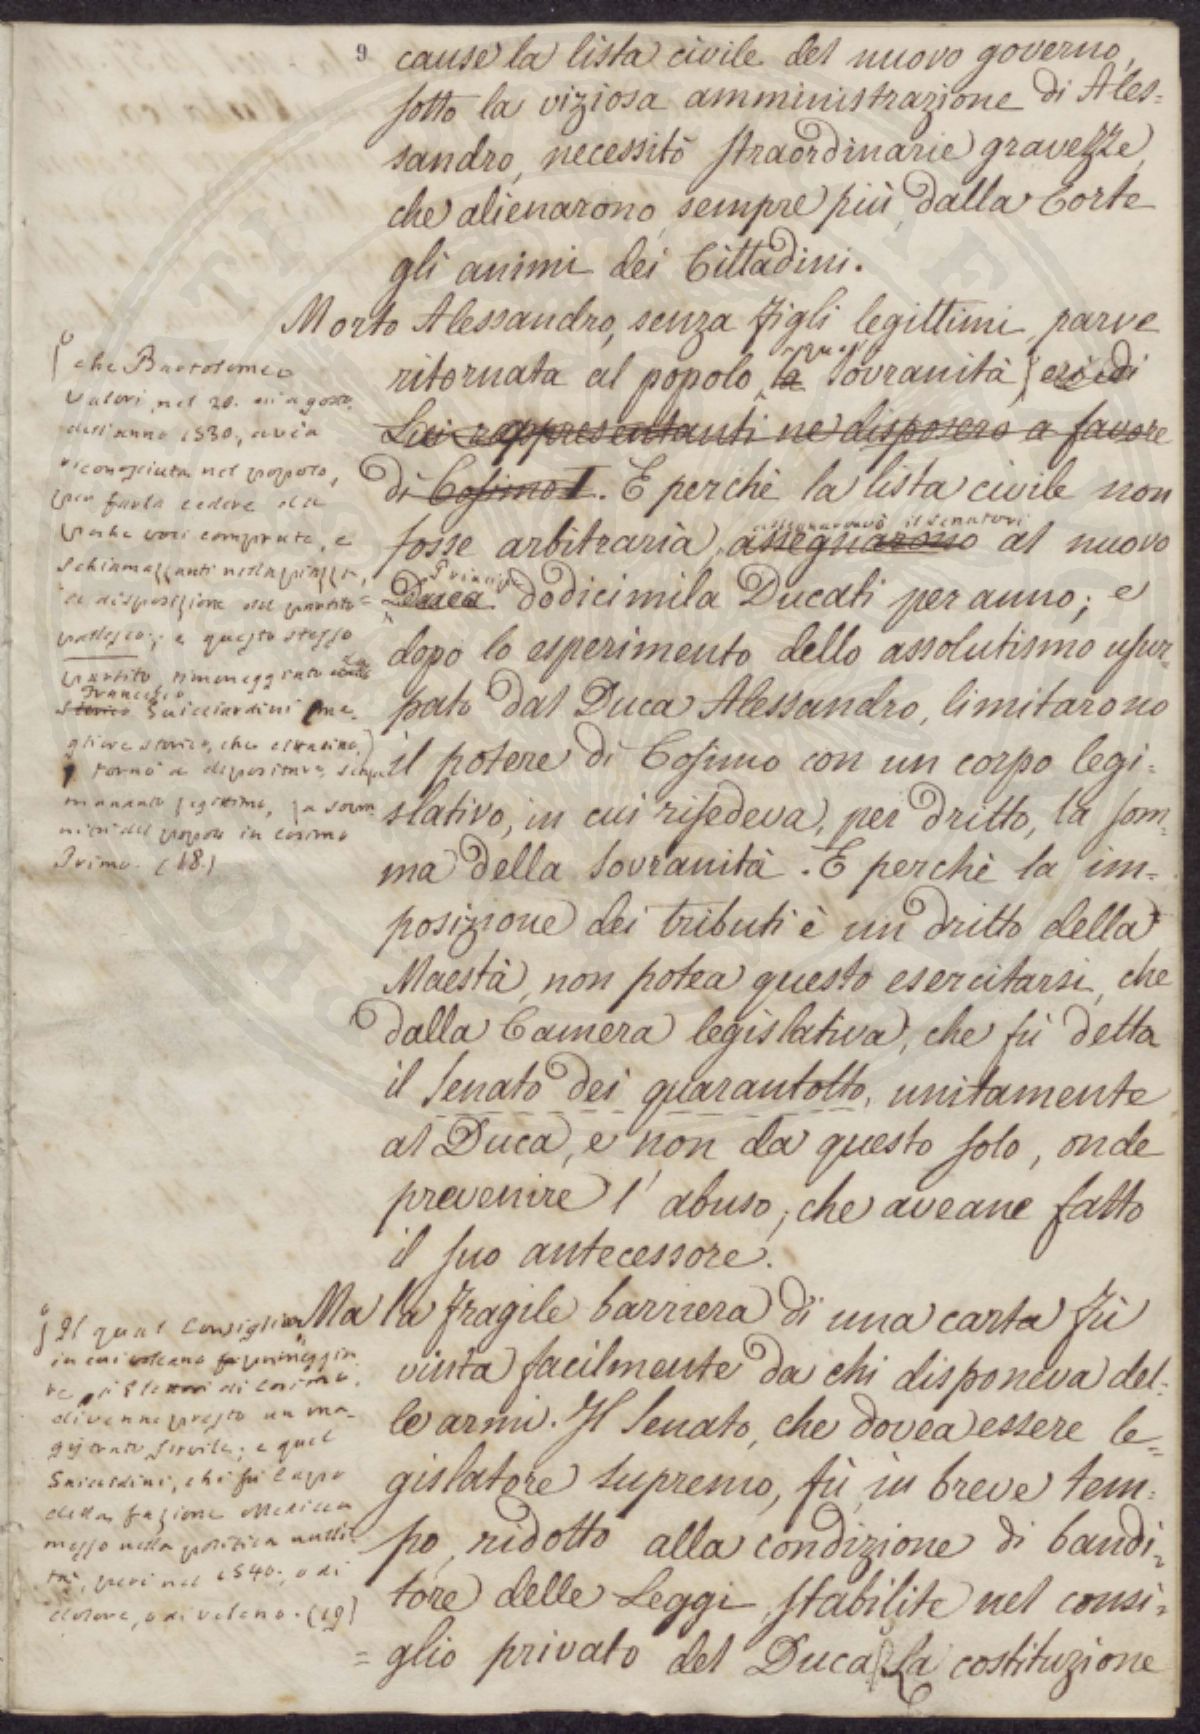 9
cause la lista civile del nuovo governo,
sotto la viziosa amministrazione di Ales=
sandro, necessitò straordinarie gravezze,
che alienarono sempre più dalla Corte
gli animi dei Cittadini.
Morto Alessandro, senza figli legittimi, parve
ritornata al popolo, la sovranità
Lui rappresentanti ne disposero a favore
di Cosimo I. E perchè la lista civile non
fosse arbitraria, assegnarono al nuovo
Duca Principe dodicimila Ducati per anno; e
dopo lo esperimento dello assolutismo usur=
pato dal Duca Alessandro, limitarono
il potere di Cosimo con un corpo legi=
slativo, in cui risedeva, per dritto, la som=
ma della sovranità. E perchè la im=
posizione dei tributi è un dritto della
Maestà, non potea questo esercitarsi, che
dalla Camera legislativa, che fù detta
il Senato dei quarantotto, unitamente
al Duca, e non da questo solo, onde
prevenire l'abuso, che aveane fatto
il suo antecessore.
Ma la fragile barriera di una carta fù
vinta facilmente da chi disponeva del=
le armi. Il Senato, che dovea essere le=
gislatore supremo, fù in breve tem=
po, ridotto alla condizione di bandi=
tore delle Leggi stabilite nel consi=
glio privato del Duca. La costituzione
che Bartolomeo
Valori, nel 20. di agosto
dell'anno 1530., avea
riconosciuta nel popolo,
per farla cedere alle
poche voci comprate, e
schiamazzanti nella piazza,
a disposizione del partito
pallesco; e questo stesso
partito rimaneggiato
Francesco
storico Guicciardini
gliore storico, che cittadino,
tornò a depositare,
la sovra
nità del popolo in Cosimo
Primo. (18.)
Il qual Consiglio
in cui
di Cosimo,
divenne presto un ma=
gistrato servile; e quel
Guicciardini, che fù Capo
della fazione Medicea
messo nella politica nulli=
tà, perì nel 1540., o di
dolore, o di veleno. (19)